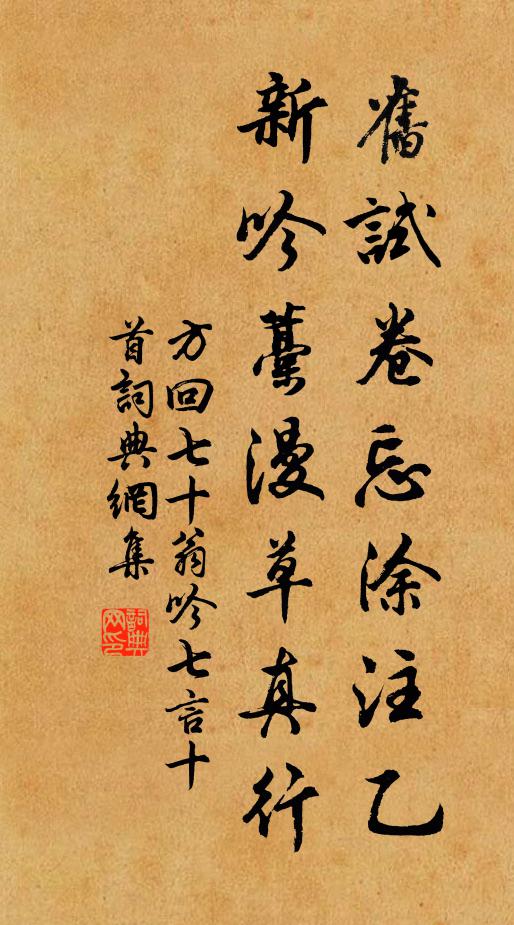 舊試卷忘涂注乙
新吟藁漫草真行
方回七十翁吟七言十
首詞典網集
詞典
网印